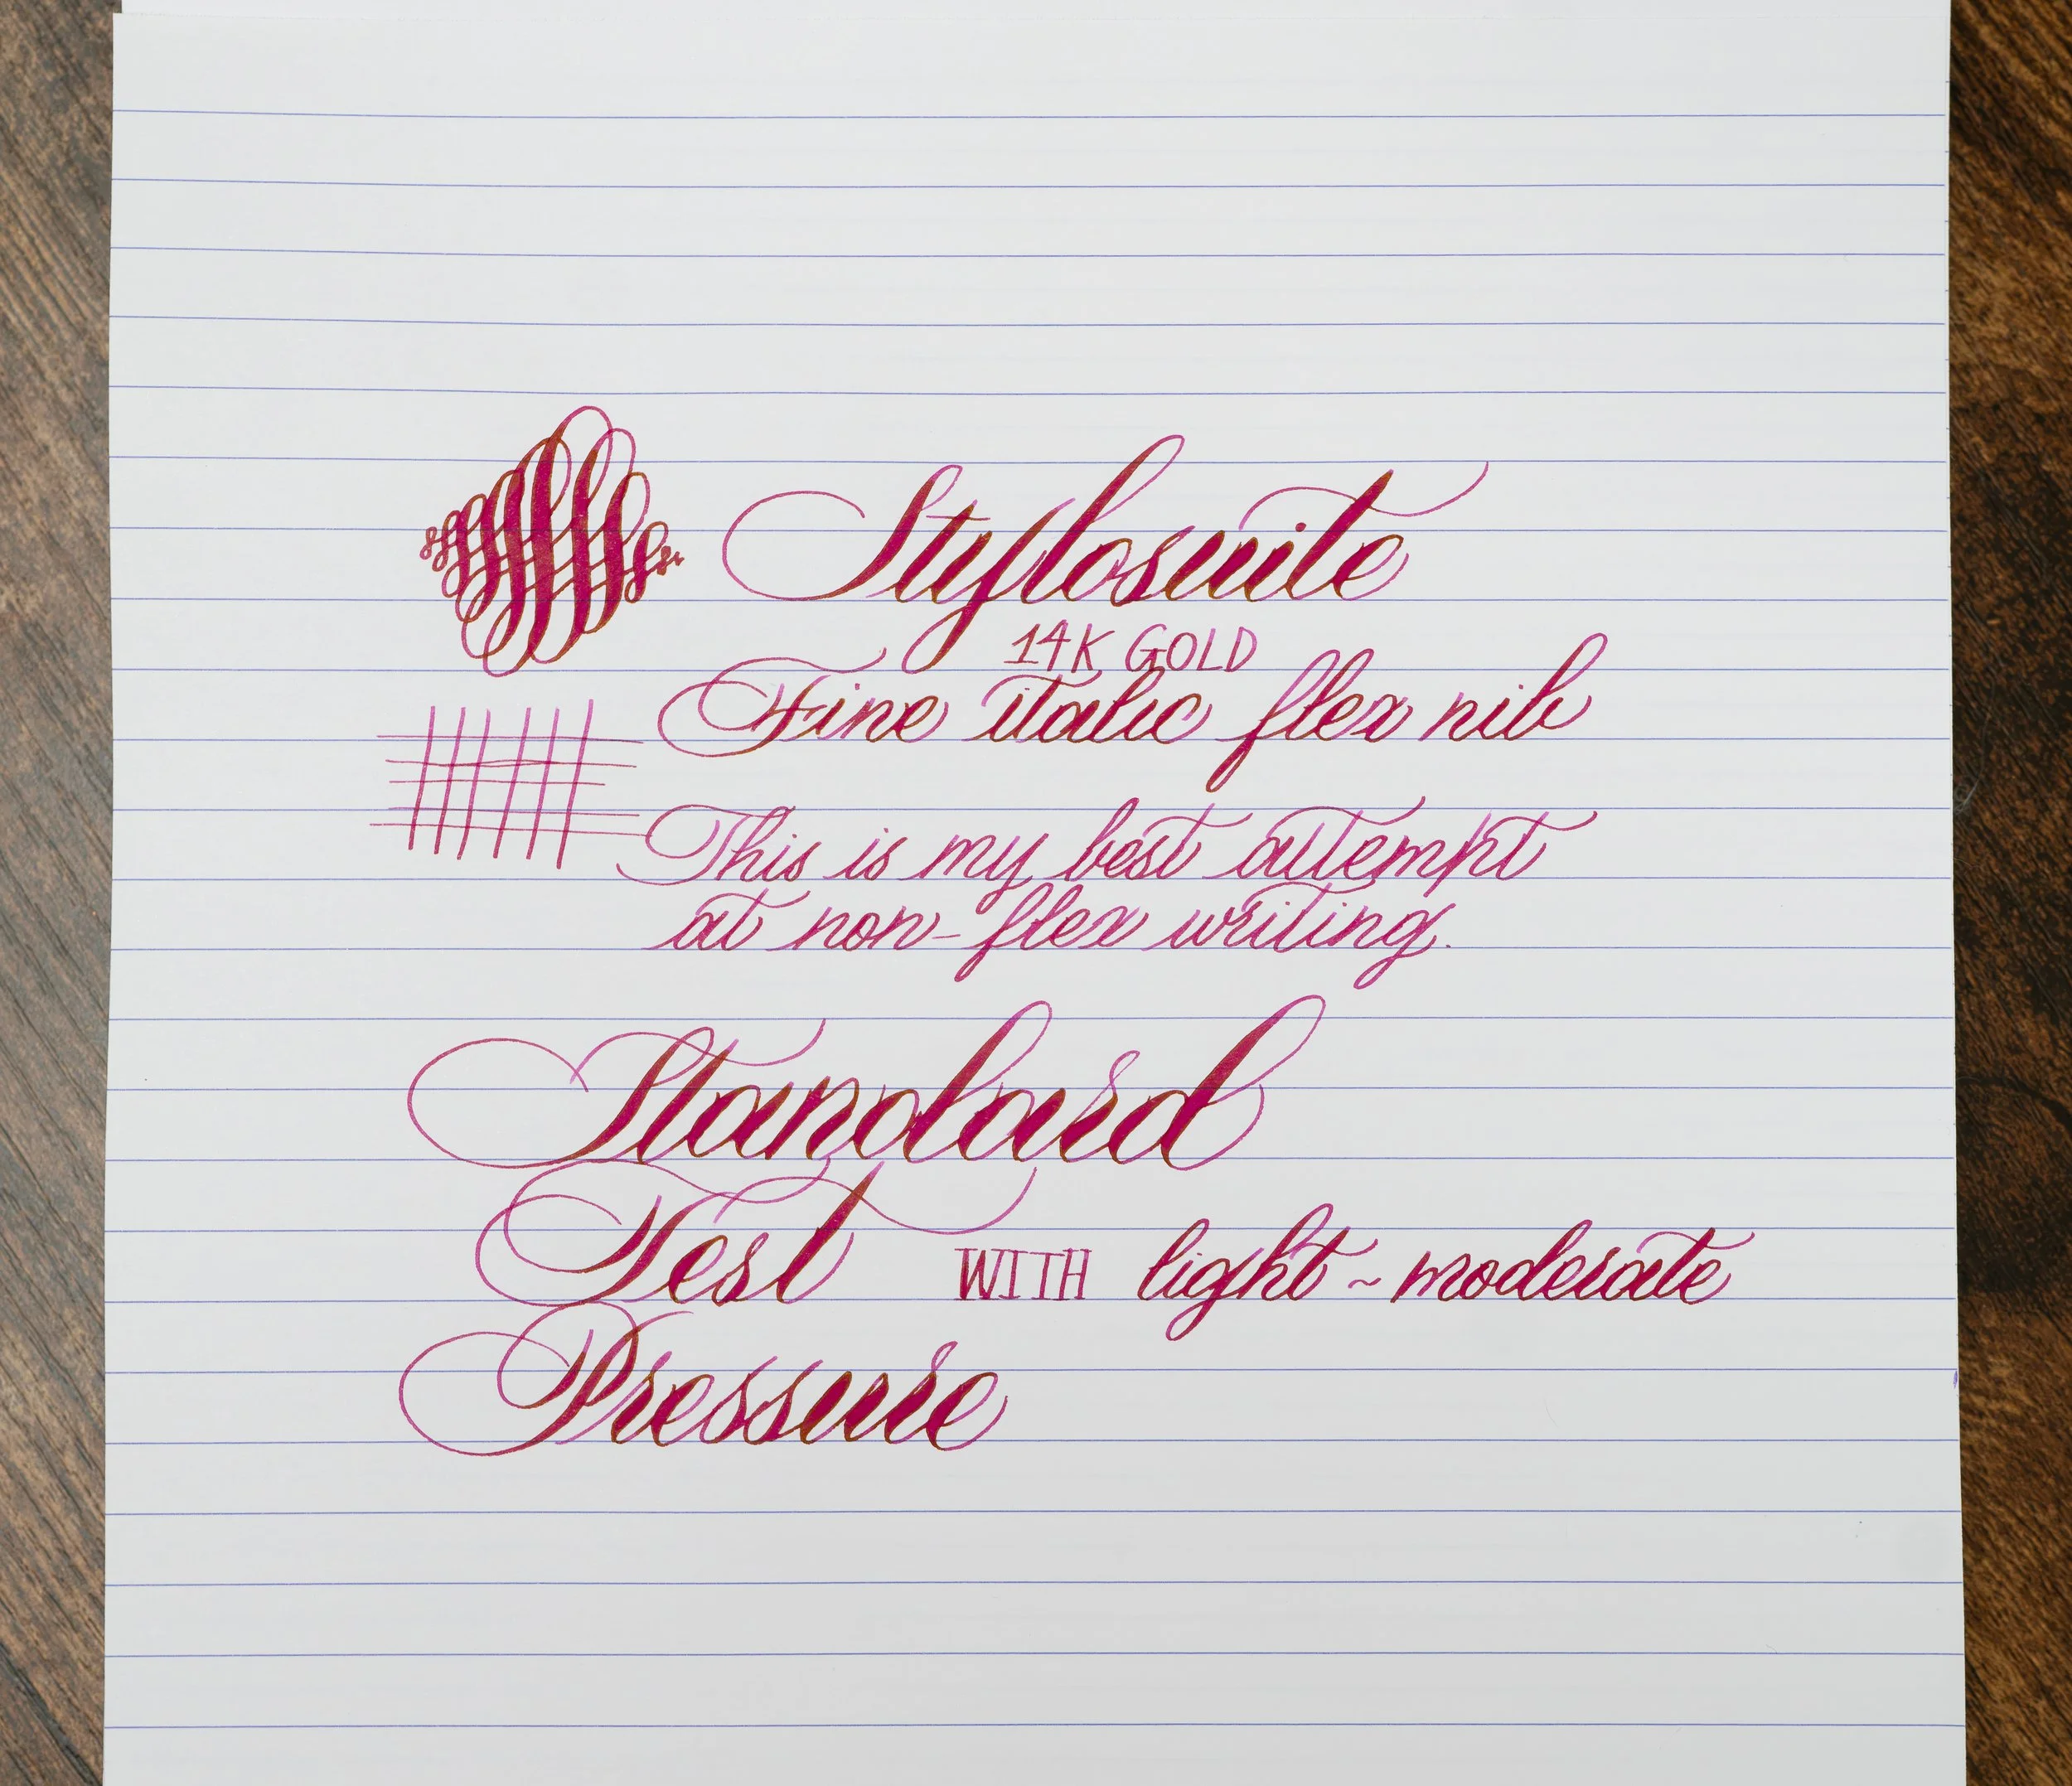 Stylosuite
14K GOLD
Fine italic flex nib
This is my best attempt
at non-flex writing.
Standard
Test WITH light~moderate
Pressure